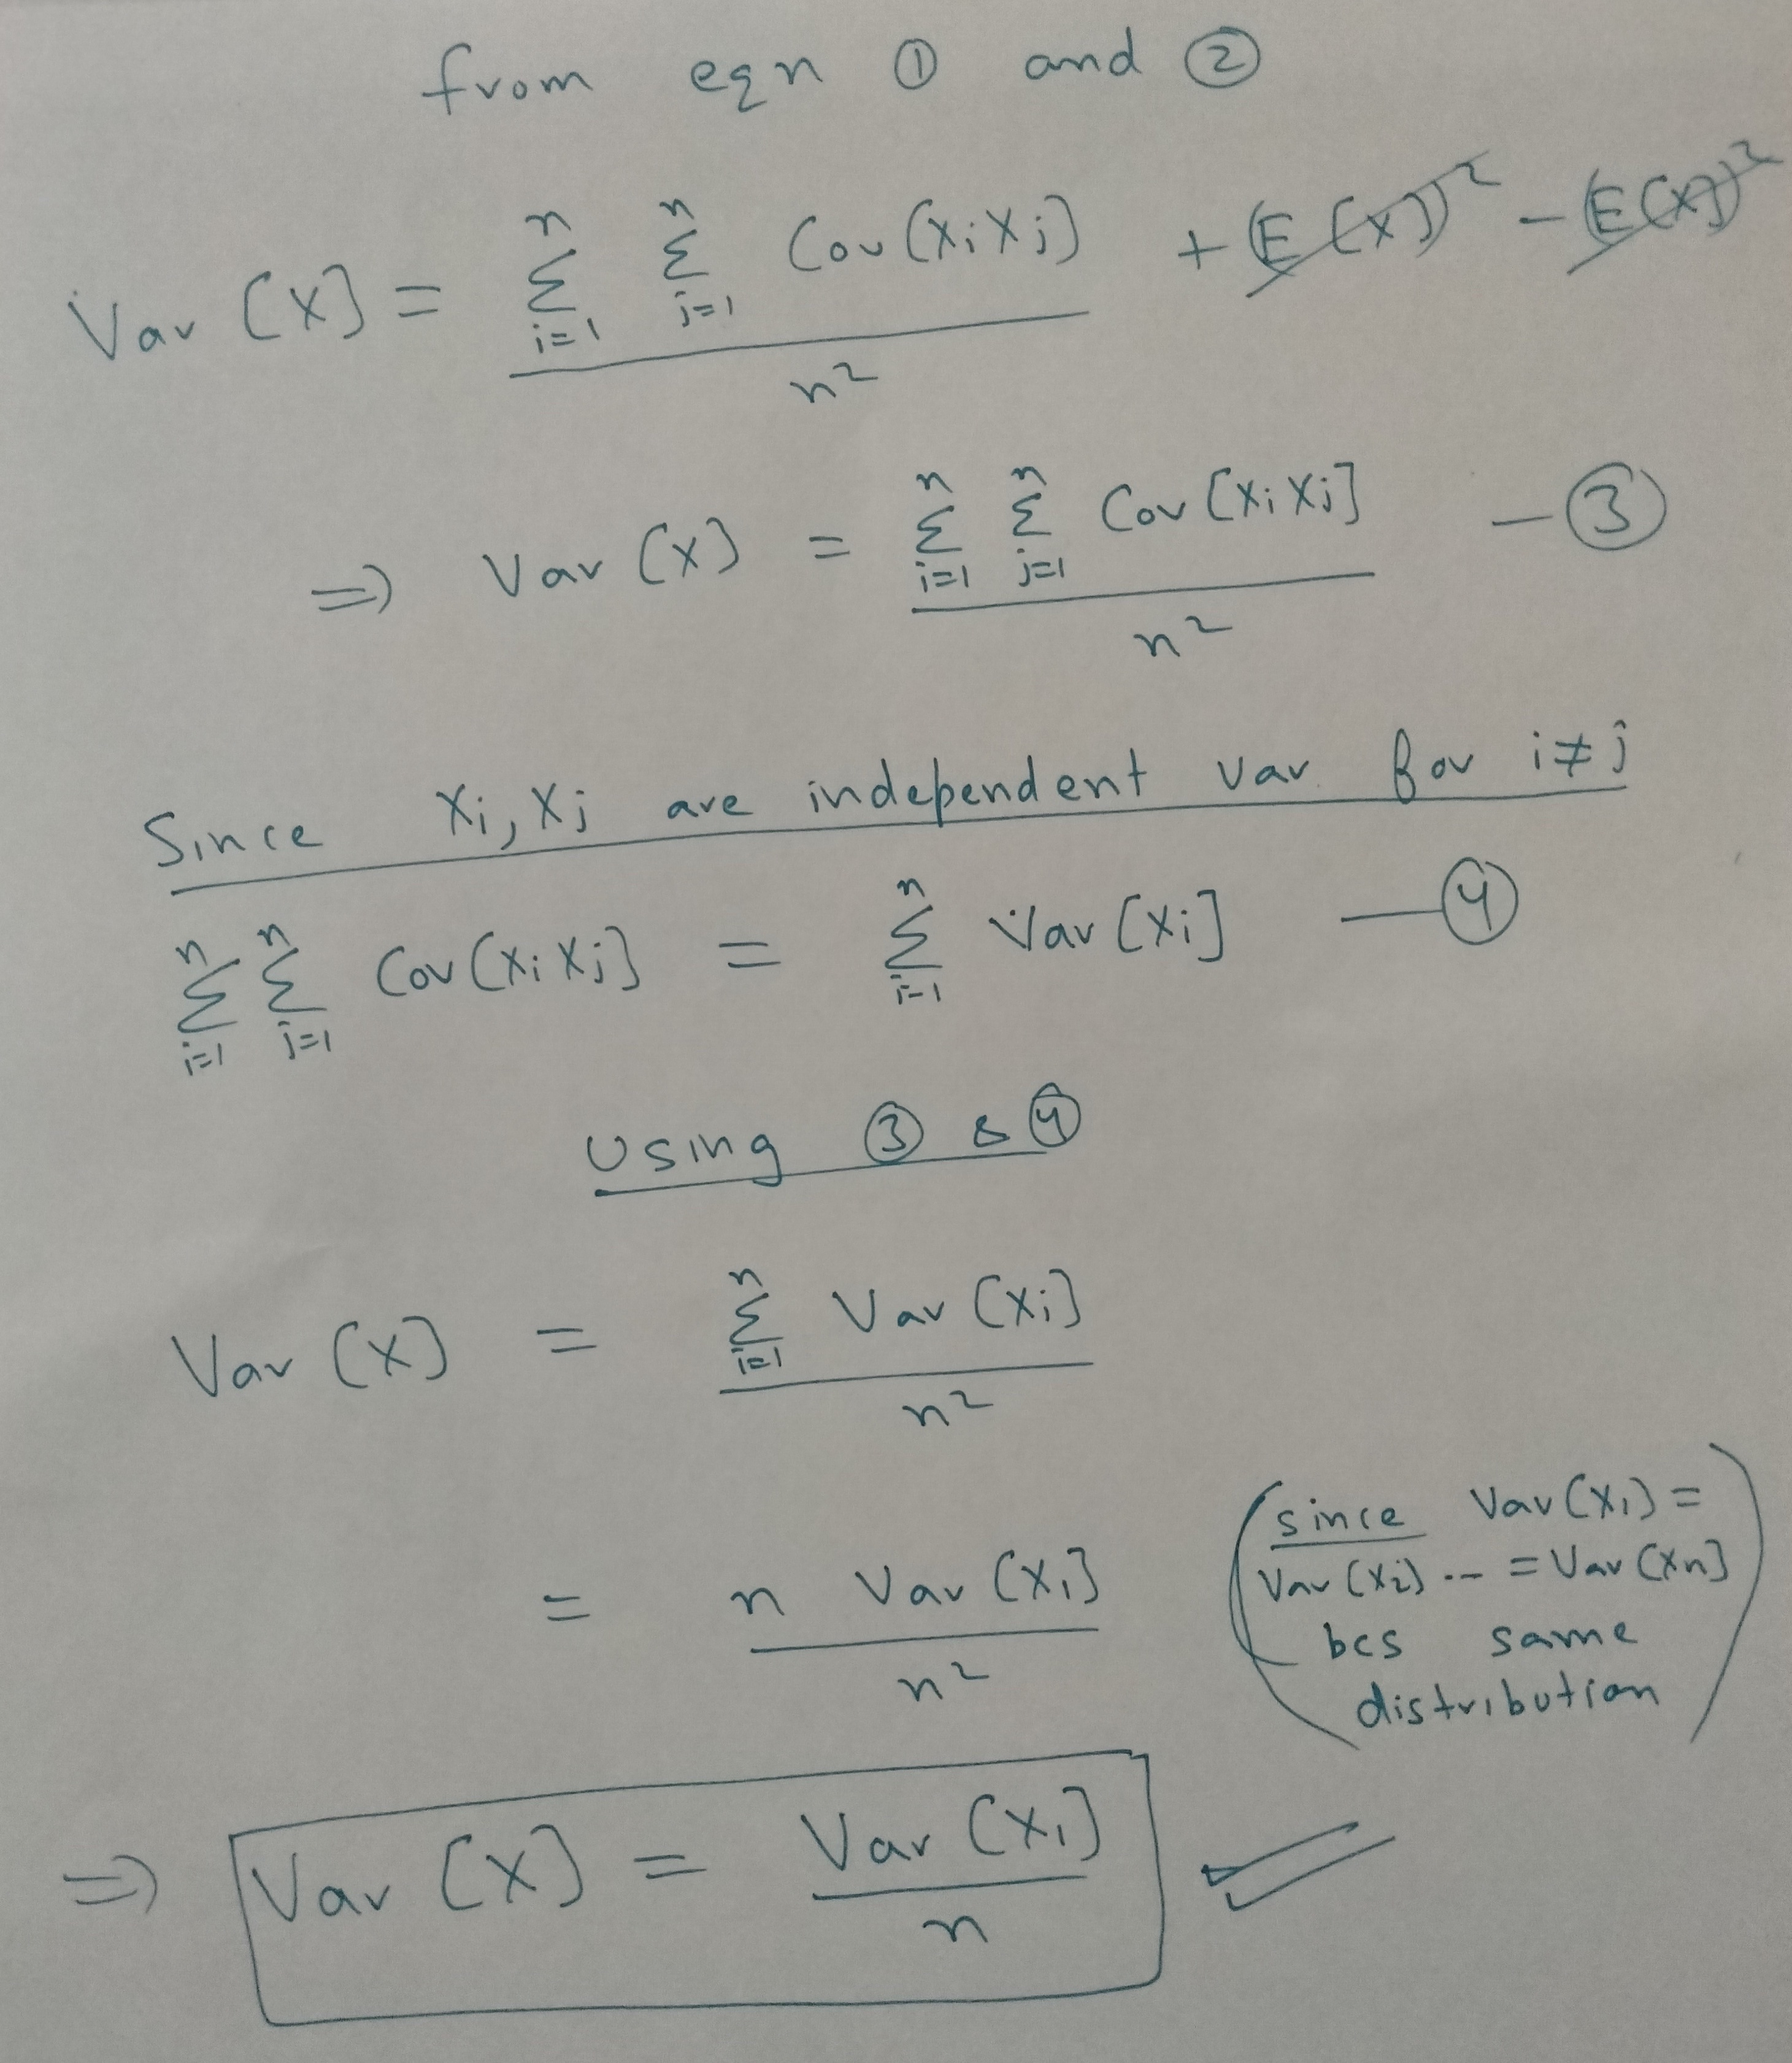 from eqn ① and ②
Var [X] = n Σ i=1 n Σ j=1 Cov [XiXj] / n² + (E [X])² - (E[X])²
=> Var [X] = n Σ i=1 n Σ j=1 Cov [XiXj] / n² - ③
Since Xi, Xj are independent var for i≠j
n Σ i=1 n Σ j=1 Cov [XiXj] = n Σ i=1 Var [Xi] — ④
Using ③ & ④
Var [X] = n Σ i=1 Var [Xi] / n²
= n Var [X₁] / n²
(since Var[X₁] =
Var [X₂] -- = Var [Xn]
bcs same
distribution)
=> Var [X] = Var [X₁] / n